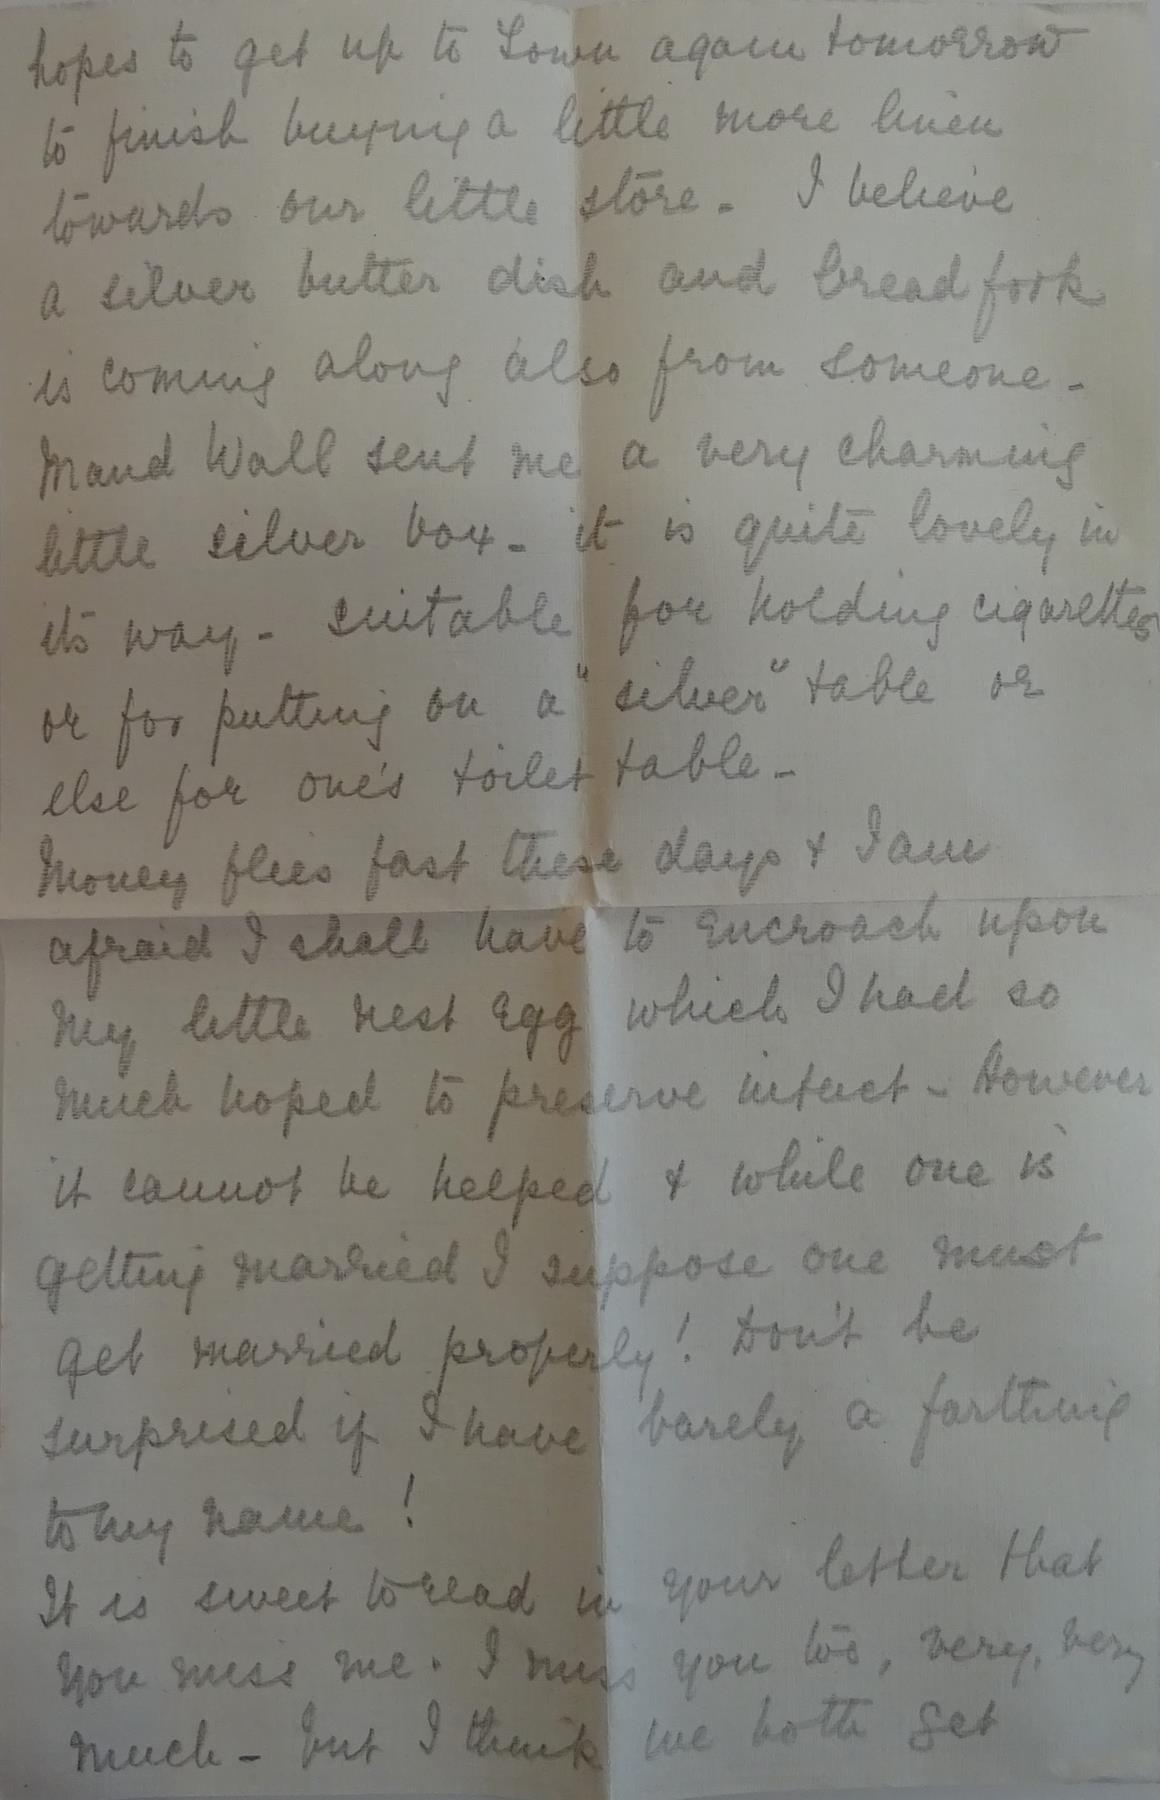 hopes to get up to Town again tomorrow
to finish buying a little more linen
towards our little store - I believe
a silver butter dish and bread fork
is coming along also from someone -
Maud Wall sent me a very charming
little silver box - it is quite lovely in
its way - suitable for holding cigarettes
or for putting on a "silver" table or
else for one's toilet table -
Money flies fast these days & I am
afraid I shall have to encroach upon
my little nest egg which I had so
much hoped to preserve intact - However
it cannot be helped & while one is
getting married I suppose one must
get married properly! Don't be
surprised if I have barely a farthing
to my name!
It is sweet to read in your letter that
you miss me. I miss you too, very, very
much - but I think we both get